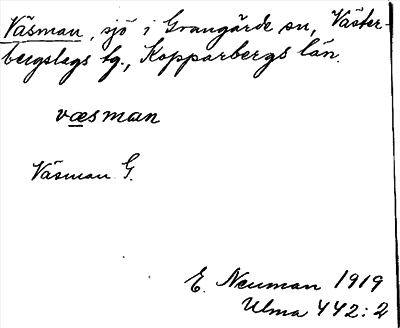 Väsman, sjö i Grangärde sn, Väster-
bergslags tg., Kopparbergs län.
væsman
Väsman G.
E. Neuman 1919
Ulma 442:2